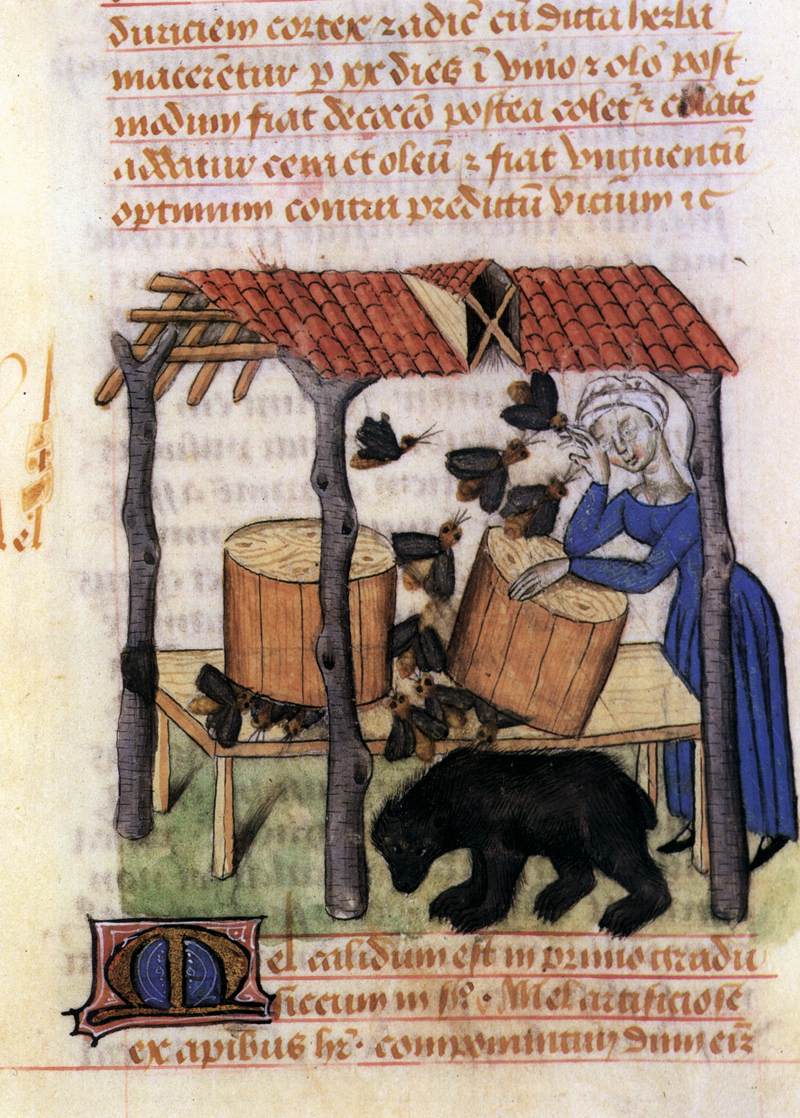 duriciem cortex radic̄ cū dicta herba
macerētur p xx dies ī vino ⁊ olō post
modum fiat decoccō postea coletr̄ ⁊
addatur cera et oleū ⁊ fiat vnguentū
optimum contra predictū vicium ⁊c
el
Mel calidum est in primo gradu
siccum in Mel artificiose
ex apibus hr̄. componuntur dum